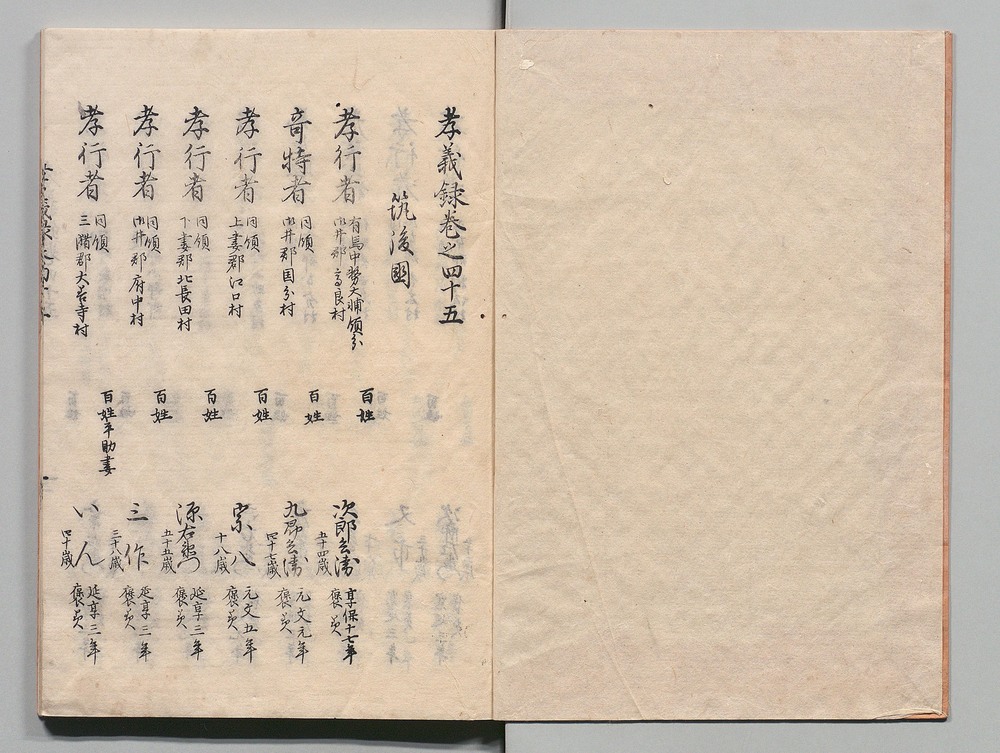 孝義録巻之四十五
筑後國
孝行者 有馬中務大輔領分 御井郡高良村 百姓 次郎兵衛 五十四歳 享保十七年 褒美
奇特者 同領 御井郡国分村 百姓 九郎兵衛 四十七歳 元文元年 褒美
孝行者 同領 上妻郡江口村 百姓 宗八 十八歳 元文五年 褒美
孝行者 同領 下妻郡北長田村 百姓 源右衛門 五十五歳 延享三年 褒美
孝行者 同領 御井郡府中村 百姓 三作 三十八歳 延享三年 褒美
孝行者 同領 三潴郡大善寺村 百姓平助妻 いん 四十歳 延享三年 褒美